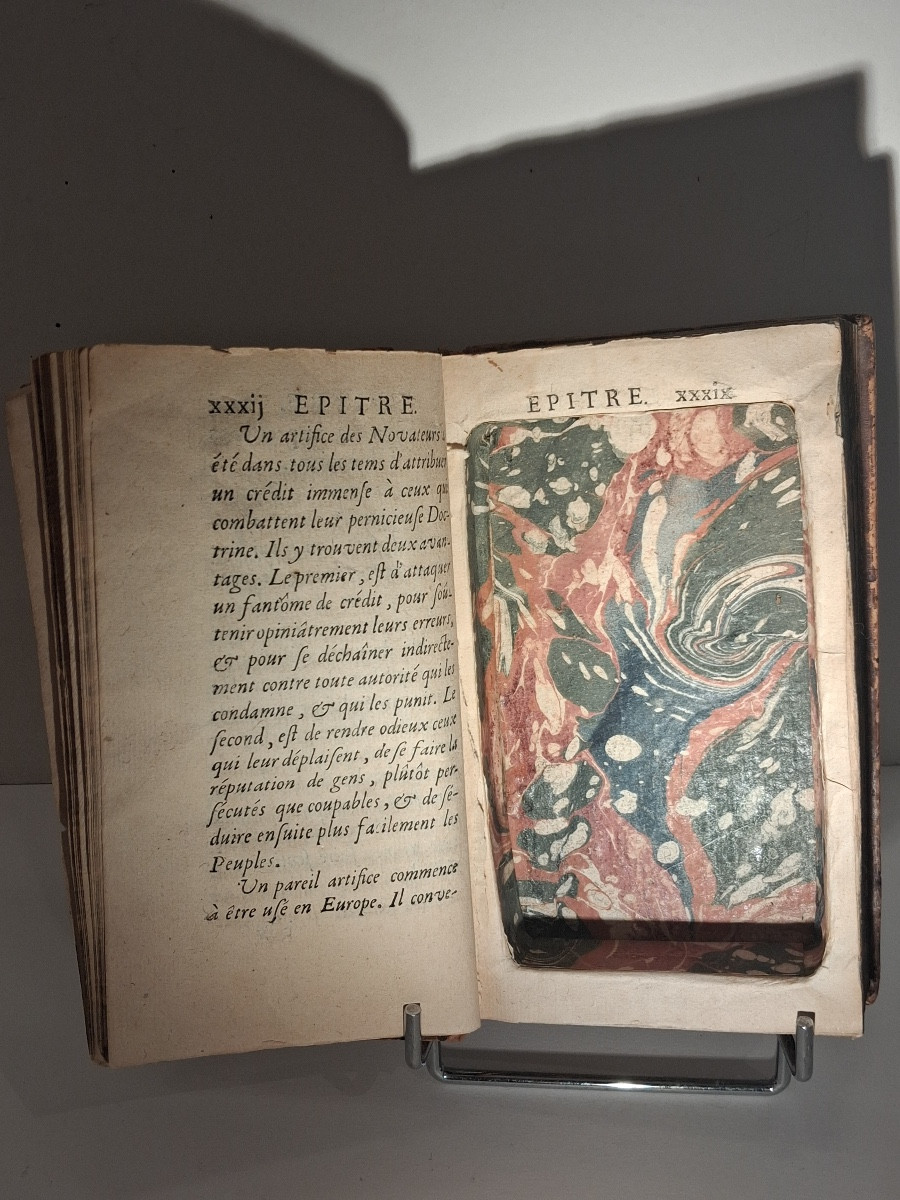 xxxij EPITRE.
Un artifice des Novateurs a
été dans tous les tems d'attribuer
un crédit immenſe à ceux qui
combattent leur pernicieuſe Doc-
trine. Ils y trouvent deux avan-
tages. Le premier, eſt d'attaquer
un fantôme de crédit, pour ſoû-
tenir opiniâtrement leurs erreurs,
& pour ſe déchaîner indirecte-
ment contre toute autorité qui les
condamne, & qui les punit. Le
ſecond, eſt de rendre odieux ceux
qui leur déplaiſent, de ſe faire la
réputation de gens, plûtôt per-
ſécutés que coupables, & de ſé-
duire enſuite plus facilement les
Peuples.
Un pareil artifice commence
à être uſé en Europe. Il conve-
EPITRE. xxxix